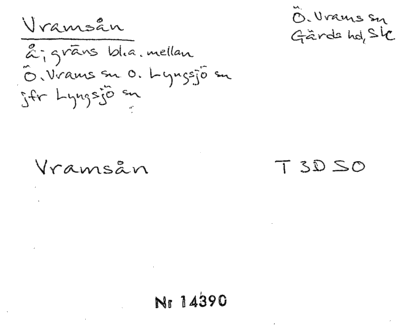 Vramsån
Ö. Vrams sn
Gärds hd, Skå
å; gräns bl.a. mellan
Ö. Vrams sn o. Lyngsjö sn
jfr Lyngsjö sn
Vramsån
T 3D SO
Nr 14390